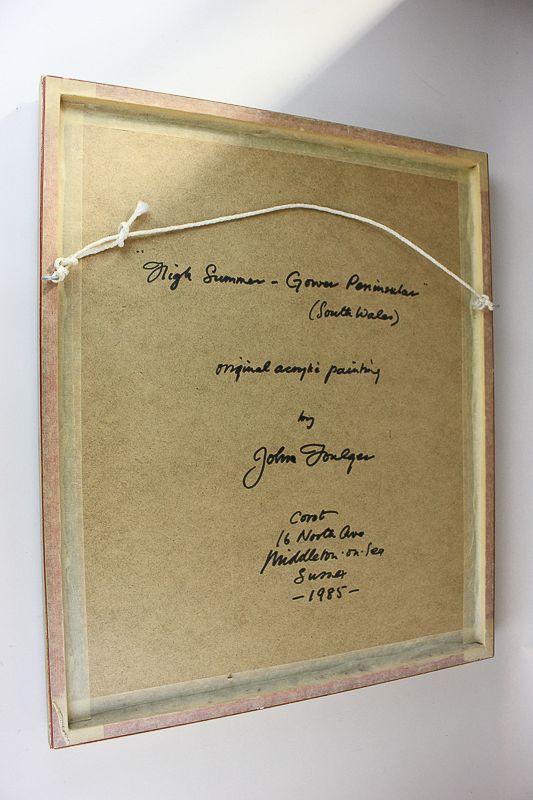 "High Summer - Gower Peninsular"
(South Wales)
original acrylic painting
by
John Foulger
Corot
16 North Ave
Middleton-on-Sea
Sussex
- 1985 -